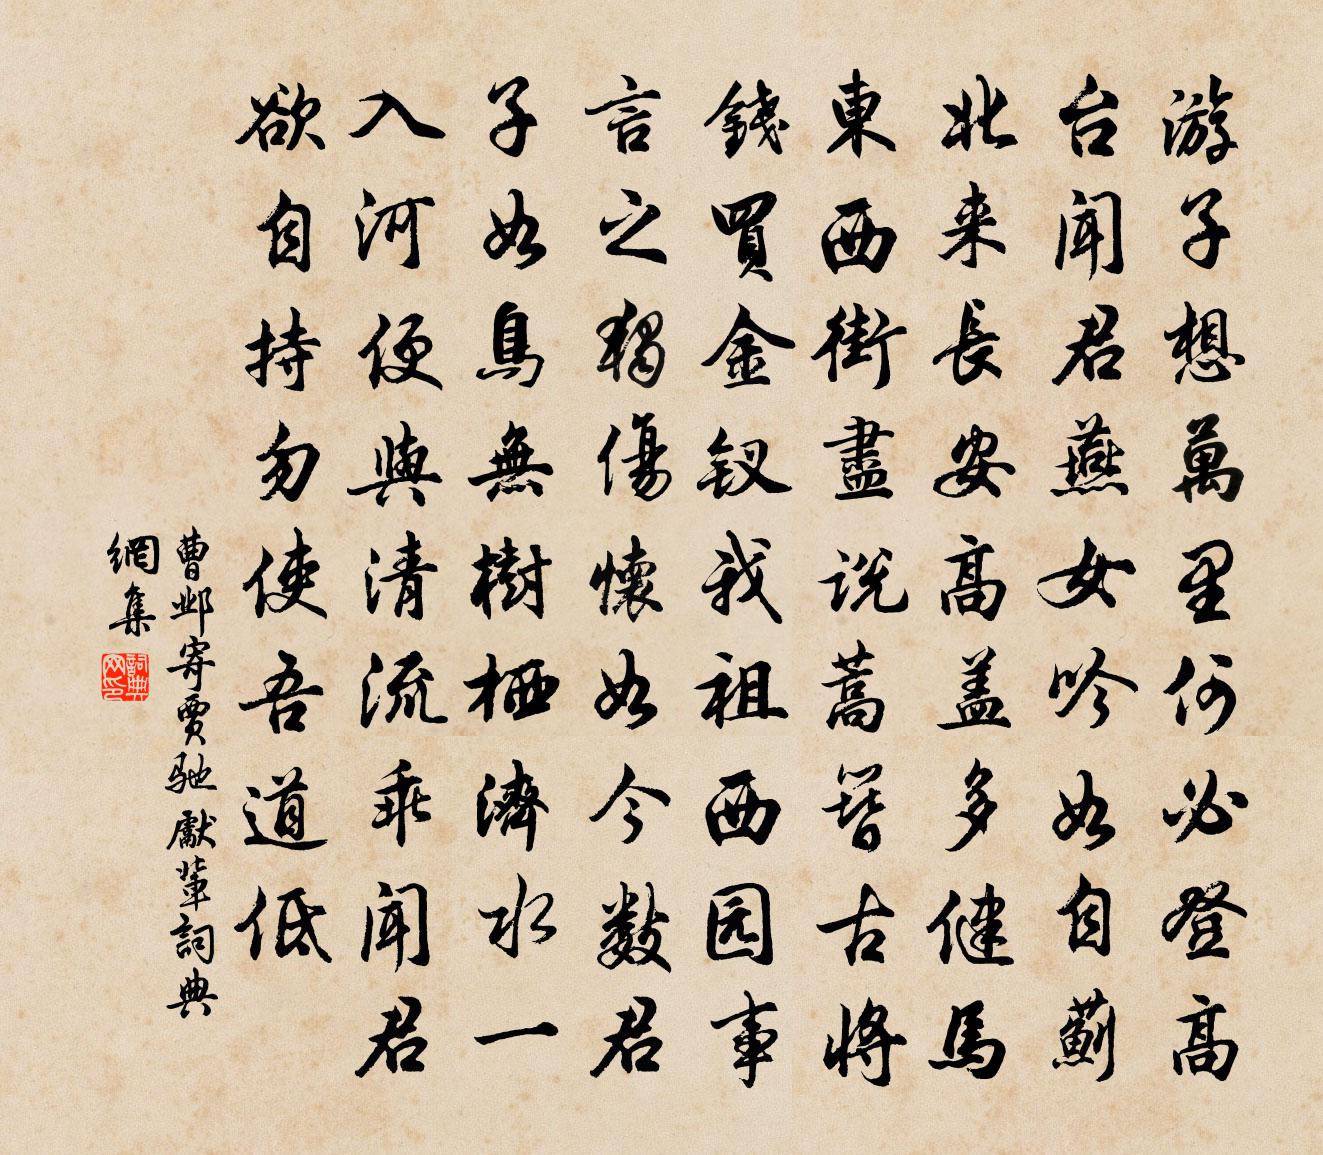 游子想萬里何必登高
台聞君燕女吟如自薊
北来長安高盖多健馬
東西街盡说蒿簪古將
錢買金钗我祖西园事
言之獨傷懷如今數君
子如鳥無樹栖濟水一
入河便與清流乖聞君
欲自持勿使吾道低
曹邺寄賈驰獻輩詞典
網集
詞典网印